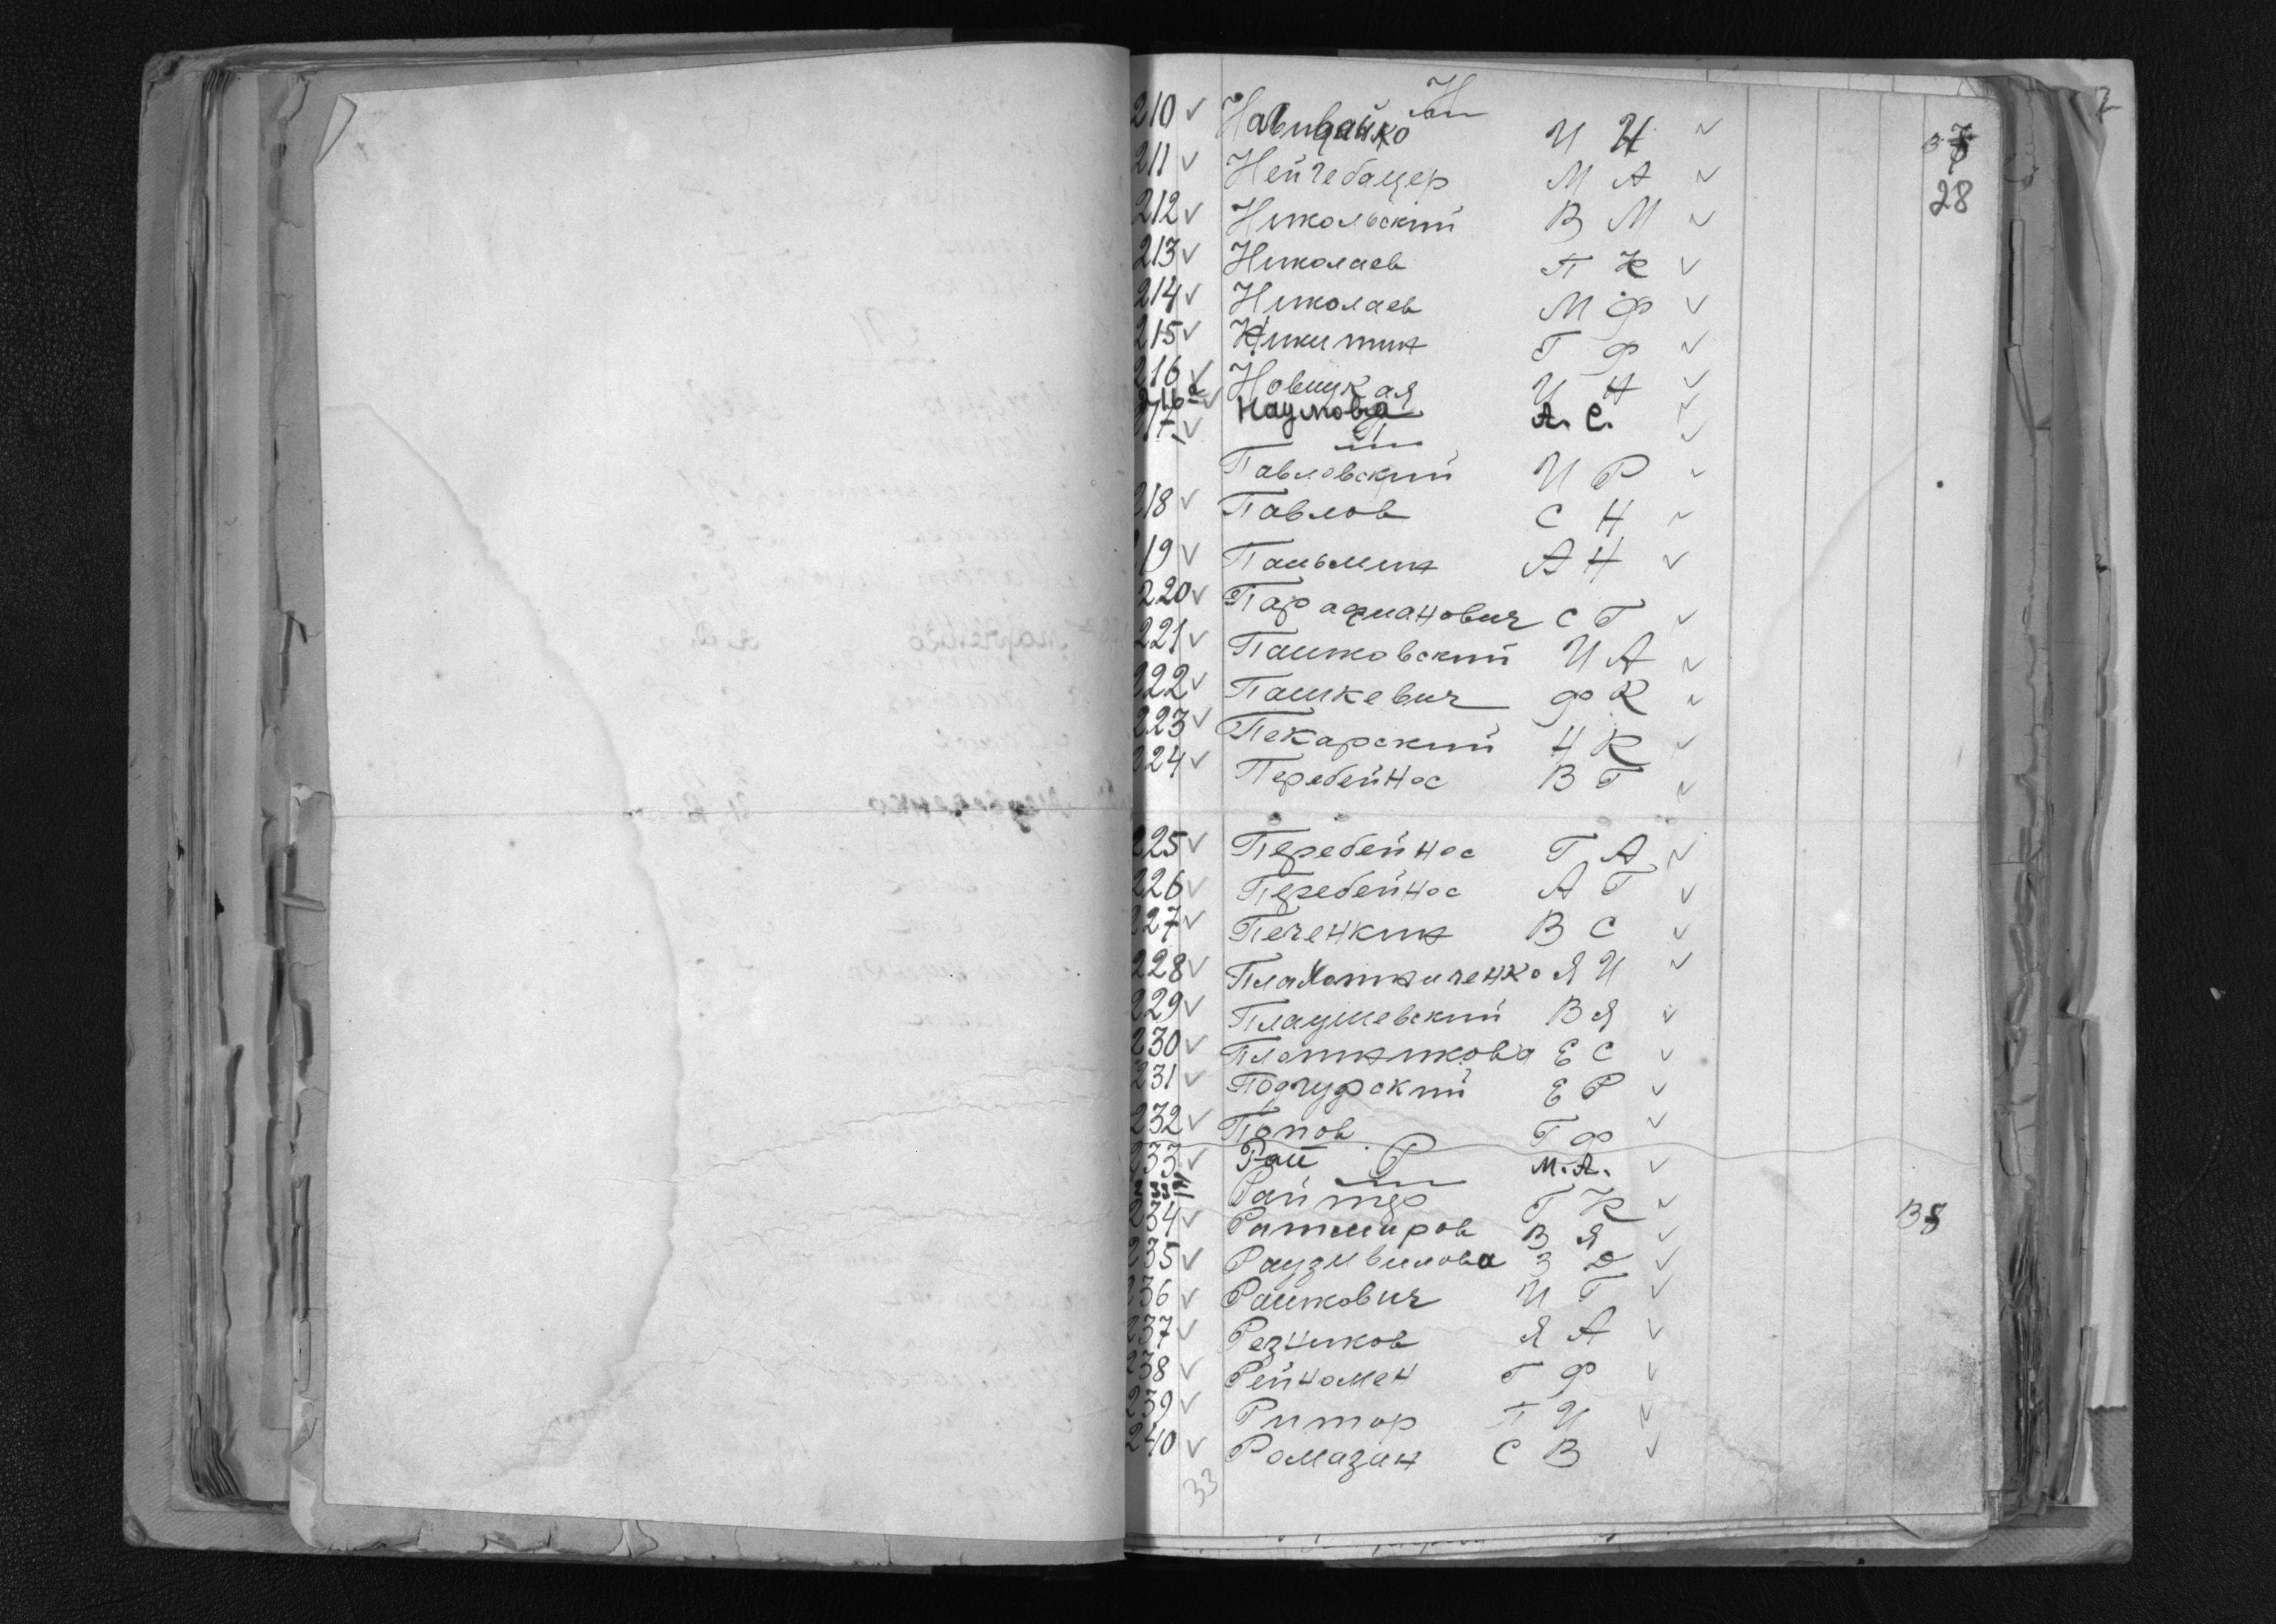 Н
210 ✓ Навиданко И Н ✓
211 ✓ Нейгебауер М А ✓ 28
212 ✓ Никольский В М ✓
213 ✓ Николаев П К ✓
214 ✓ Николаев М Ф ✓
215 ✓ Никитин Г Ф ✓
216 ✓ Новицкая И Н ✓
216а ✓ Наумова А. С. ✓
217 ✓ П ✓
Павловский И Р ✓
218 ✓ Павлов С Н ✓
219 ✓ Паньмин А Н ✓
220 ✓ Парафианович С Г ✓
221 ✓ Пашковский И А ✓
222 ✓ Пашкевич Ф К ✓
223 ✓ Пекарский Н К ✓
224 ✓ Перебейнос В Г ✓
225 ✓ Перебейнос Г А ✓
226 ✓ Перебейнос А Г ✓
227 ✓ Печенкин В С ✓
228 ✓ Плахотниченко Я И ✓
229 ✓ Плаушевский В Я ✓
230 ✓ Плотникова Е С ✓
231 ✓ Подгурский Е Р ✓
232 ✓ Попов Г Ф ✓
233 ✓ Рац М. А. ✓
Р
233а Райтер Г К ✓
234 ✓ Ратмиров В Я ✓
235 ✓ Раузивилова З Д ✓
236 ✓ Рашкович И Г ✓
237 ✓ Резников Я А ✓
238 ✓ Рейномен Г Ф ✓
239 ✓ Ритор П И ✓
240 ✓ Ромазан С В ✓
33